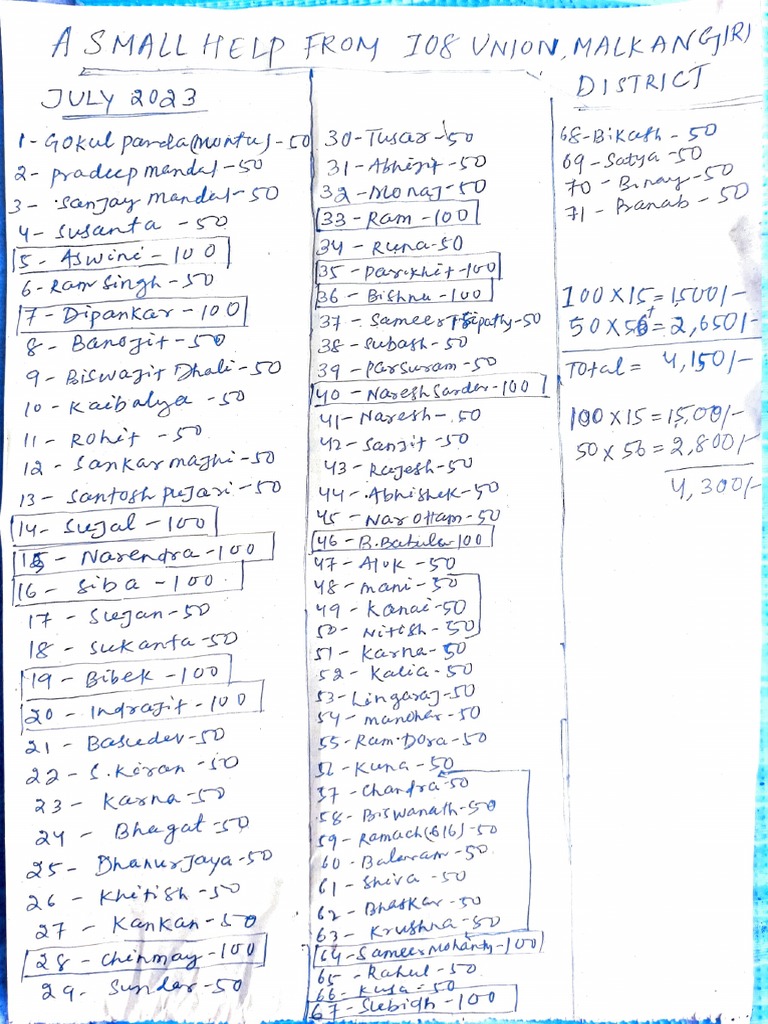 A SMALL HELP FROM 108 UNION, MALKANGIRI
DISTRICT
JULY 2023
1- Gokul panda(Montu) - 50
2- pradeep mandal-50
3- Sanjay mandal-50
4- Susanta - 50
5- Aswini - 100
6- Ram Singh - 50
7- Dipankar - 100
8- Banojit - 50
9- Biswajit Dhali - 50
10- Kaibalya - 50
11- Rohit - 50
12- Sankar majhi - 50
13- Santosh pujari - 50
14- Sujal - 100
15- Narendra - 100
16- Siba - 100
17- Sujan - 50
18- Sukanta - 50
19- Bibek - 100
20- Indrajit - 100
21- Basudev - 50
22- S. Kiran - 50
23- Karna - 50
24- Bhagat - 50
25- Dhanurjaya - 50
26- Khitish - 50
27- Kankan - 50
28- Chinmay - 100
29- Sundar - 50
30- Tusar - 50
31- Abhijit - 50
32- Monaj - 50
33- Ram - 100
34- Runa - 50
35- Parikhit - 100
36- Bishnu - 100
37- Sameer Tripathy - 50
38- Subash - 50
39- Parsuram - 50
40- Naresh Sarder - 100
41- Naresh - 50
42- Sanjit - 50
43- Rajesh - 50
44- Abhishek - 50
45- Narottam - 50
46- B. Babula 100
47- Aluk - 50
48- mani - 50
49- Kanai - 50
50- Nitish - 50
51- Karna - 50
52- Kalia - 50
53- Lingaraj - 50
54- manohar - 50
55- Ram Dora - 50
56- Kuna - 50
57- Chandra - 50
58- Biswanath - 50
59- Ramach(616) - 50
60- Balaram - 50
61- Shiva - 50
62- Bhaskar - 50
63- Krushna - 50
64- Sameer Mohanty - 100
65- Rahul - 50
66- Kusa - 50
67- Subigh - 100
68- Bikash - 50
69- Satya - 50
70- Binay - 50
71- Pranab - 50
100 X 15 = 1,500/-
50 X 56 = 2,650/-
Total = 4,150/-
100 X 15 = 15,00/-
50 X 56 = 2,800/-
4,300/-